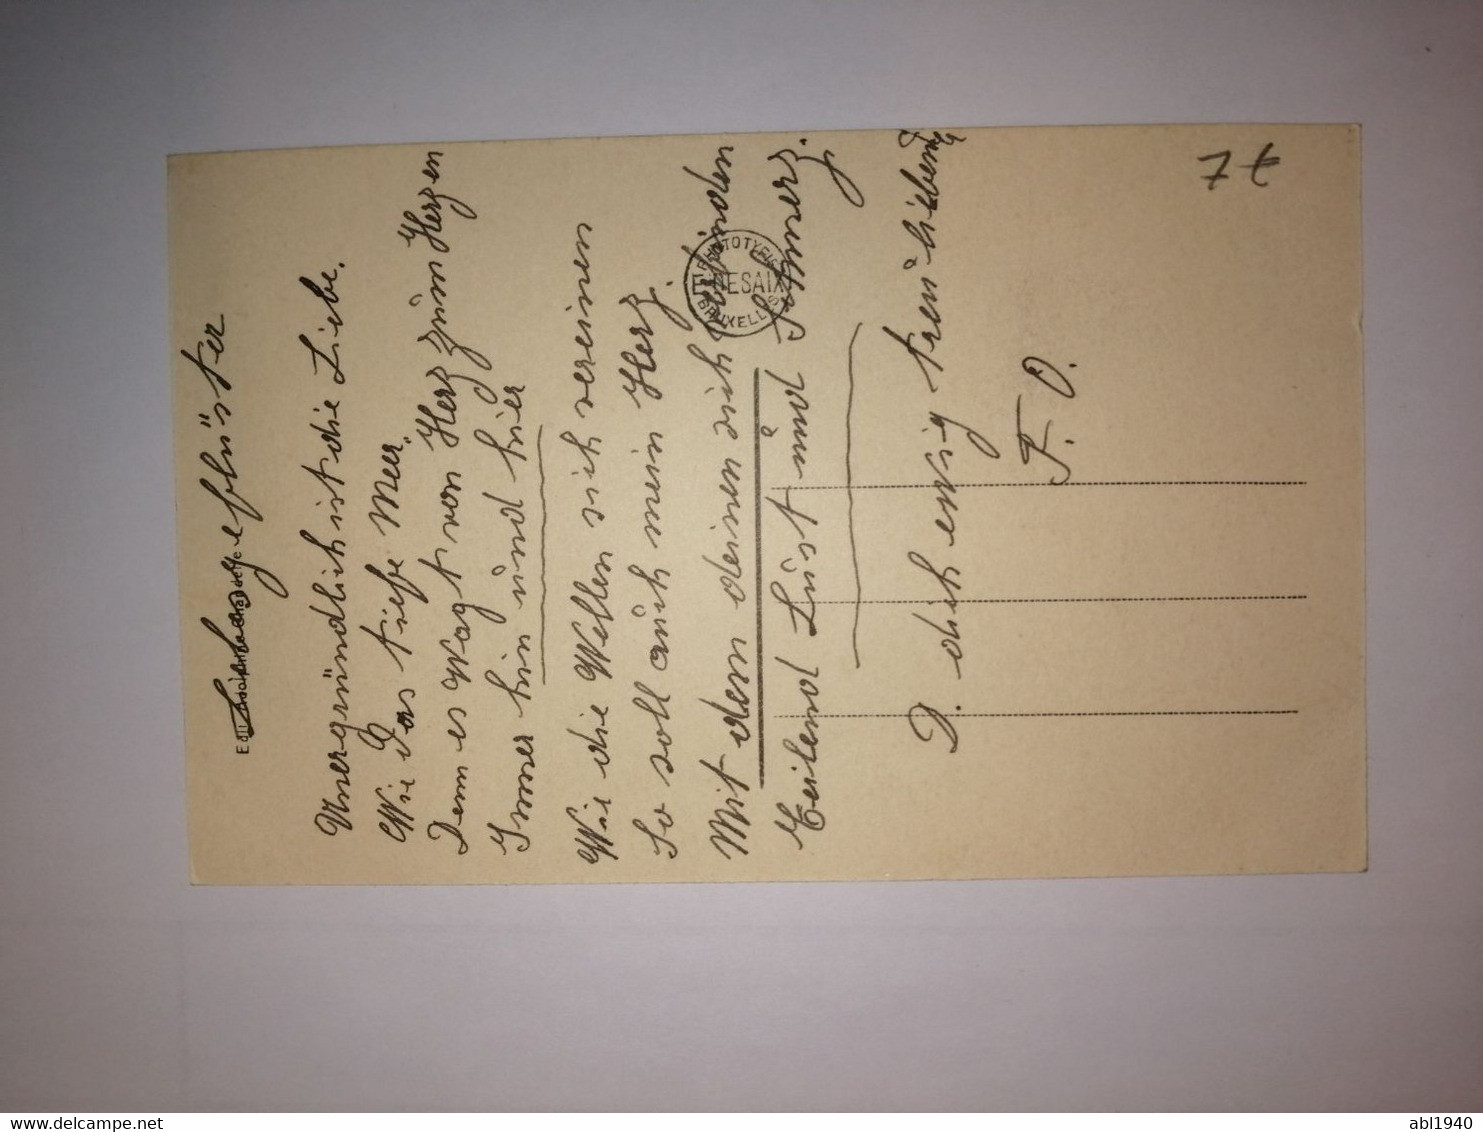 Liebesgeflüster
Unergründlich ist die Liebe.
Wie das tiefe Meer.
Denn es Wogt von Herz zum Herzen
Immer hin und hier
Wie die Wellen sich vereinen
So soll auch mein Herz.
Mit dem deinen sich verbinden
Teilend Lust und Schmerz.
D. dich ewig treu liebend
F. O.
PHOTOTYPIE
E. DESAIX
BRUXELLES
7 €
abl1940